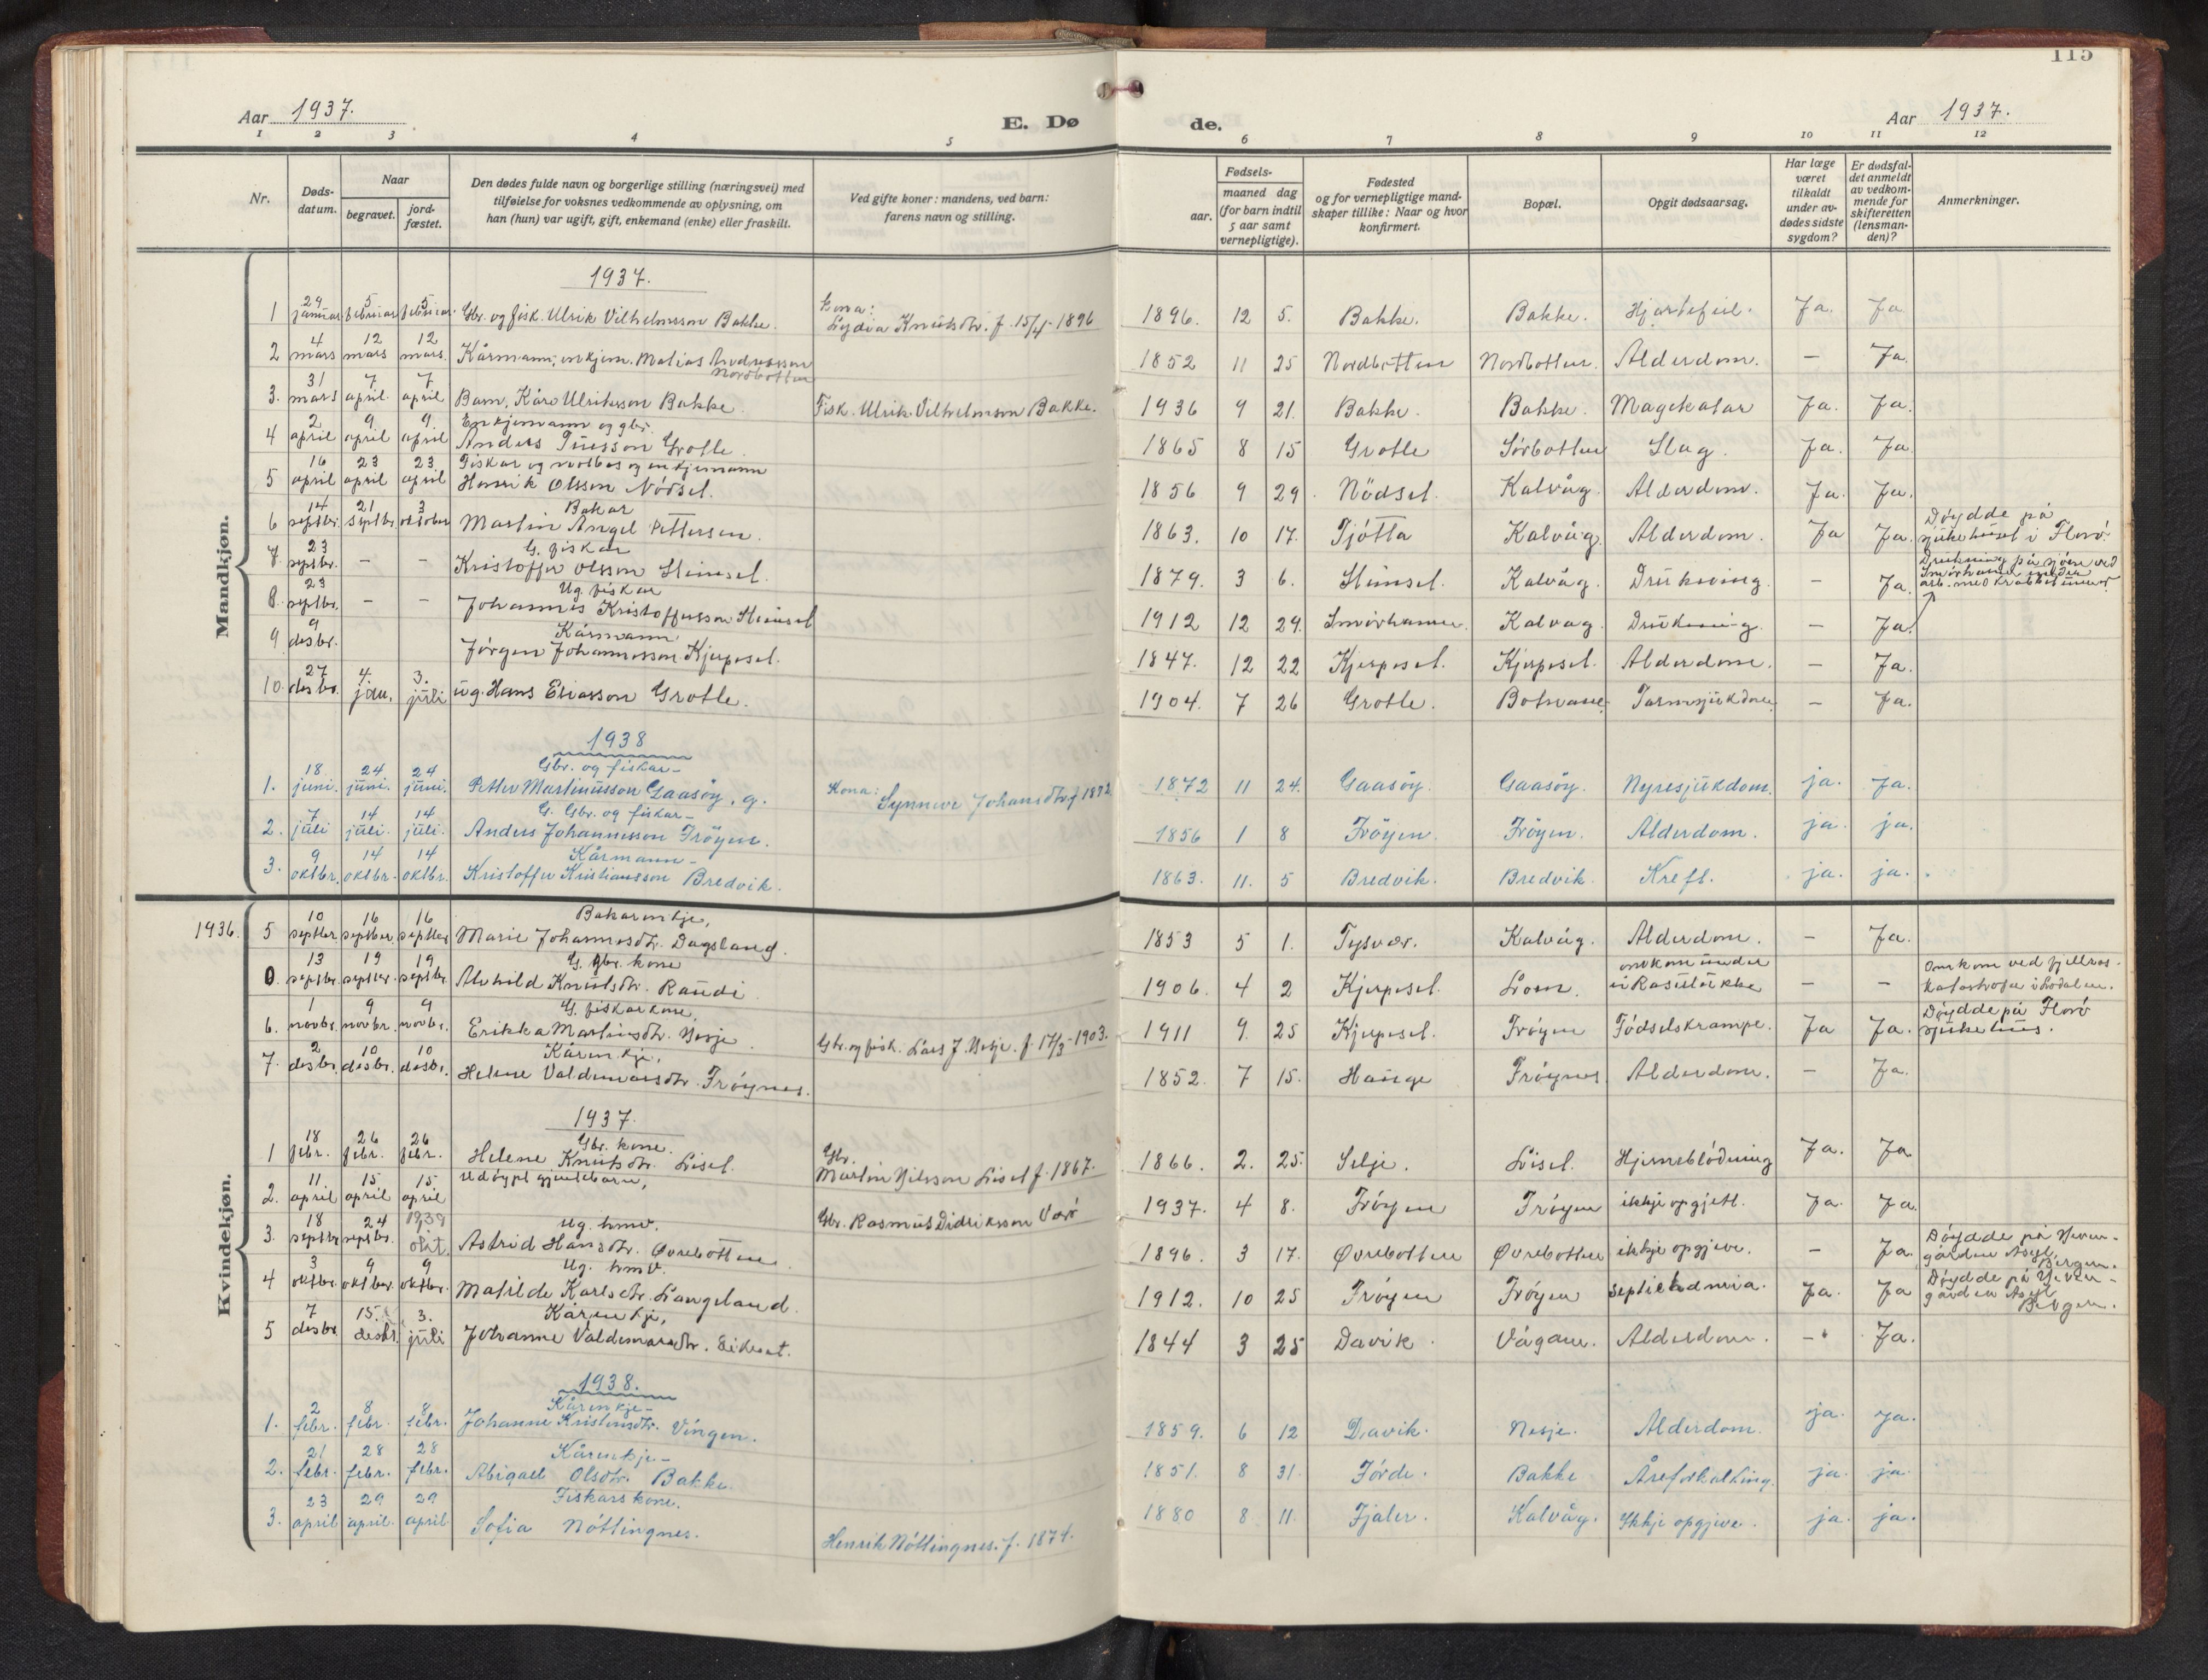 115
Aar 1937.
E. Dø de.
Aar 1937.
1 2 3 4 5 6 7 8 9 10 11 12
Nr.
Døds-datum.
Naar
begravet.
jord-fæstet.
Den dødes fulde navn og borgerlige stilling (næringsvei) med
tilføielse for voksnes vedkommende av oplysning, om
han (hun) var ugift, gift, enkemand (enke) eller fraskilt.
Ved gifte koner: mandens, ved barn:
farens navn og stilling.
Fødsels-
aar. maaned dag
(for barn indtil
5 aar samt
vernepligtige).
Fødested
og for vernepligtige mand-
skaper tillike: Naar og hvor
konfirmert.
Bopæl.
Opgit dødsaarsag.
Har læge
været
tilkaldt
under av-
dødes sidste
sygdom?
Er dødsfal-
det anmeldt
av vedkom-
mende for
skifteretten
(lensman-
den)?
Anmerkninger.
Mandkjøn.
1937.
1 29 januar 5 februar 5 februar Gbr. og fisk. Ulrik Vilhelmsson Bakke. Kona: Lydia Knutsdtr. f. 15/4-1896 1896. 12 5. Bakke. Bakke. Hjartefeil. Ja. Ja.
2 4 mars 12 mars 12 mars. Kårmann, enkjem. Matias Andreasson Nordbotten 1852 11 25 Nordbotten Nordbotten. Alderdom. — Ja.
3. 31 mars 7 april. 7 april Barn, Kåre Ulriksson Bakke. Fisk. Ulrik Vilhelmson Bakke. 1936 9 21. Bakke. Bakke. Magekatar Ja. Ja.
4 2 april 9 april 9 april Enkjemann og gbr. Anders Tuesson Grotle. 1865 8 15 Grotle Sørbotten Slag. Ja. Ja.
5 16 april 23 april 23 april Fiskar og notbas og enkjemann Henrik Olsson Nödsel. 1856 9 29. Nödsel. Kalvåg. Alderdom. Ja. Ja.
6 14 septbr. 21 septbr. 3 oktober Bakar Martin Angel Pettersen. 1863. 10 17. Tjötta Kalvåg. Alderdom. Ja Ja. Döydde på sjukehuset i Florö.
7. 23 septbr. — — G. fiskar Kristoffer Olsson Steinset. 1879. 3 6. Steinset. Kalvåg. Drukning. — Ja. Drukning på sjöen ved Smörhamn under arb. med krabbeteiner.
8. 23 septbr. — — Ug. fiskar Johannes Kristoffersson Steinset 1912 12 29. Smörhamn. Kalvåg. Drukning. — Ja.
9 9 desbr. Kårmann Jörgen Johannesson Kjerpesel. 1847. 12 22 Kjerpesel. Kjerpesel. Alderdom. — Ja.
10. 27 desbr. 4. jan. 3. juli ug. Hans Eliasson Grotle. 1904. 7 26 Grotle. Botnane. Tarmsjukdom. — Ja.
1938
1. 18 juni. 24 juni. 24 juni. Gbr. og fiskar – Petter Martinusson Gaasöy, g. Kona: Synneve Johansdtr. f 1872 1872 11 24. Gaasöy. Gaasöy. Nyresjukdom. ja. Ja.
2. 7 juli 14 juli. 14 juli. G. Gbr. og fiskar – Anders Johannesson Fröyen. 1856 1 8 Fröyen. Fröyen. Alderdom. ja. ja.
3. 9 oktbr. 14 oktbr. 14 oktbr. Kårmann – Kristoffer Kristiansson Bredvik. 1863. 11. 5 Bredvik. Bredvik. Kreft. ja. ja.
Kvindekjøn.
1936. 5 10 septbr 16 septber. 16 septber Bakarenkje, Marie Johannesdtr. Dagsland. 1853 5 1. Tysvær. Kalvåg. Alderdom. — Ja.
0. 13 septbr. 19 septbr. 19 septbr. G. gbr. kone Alvhild Knutsdtr. Raudi 1906. 4 2 Kjerpesel. Loen. omkom under Rasulukke — — Omkom ved fjellras-katastrofen i Lodalen.
6. 1 novbr. 9 novbr. 9 novbr. G. fiskarkone, Erikka Martinsdtr. Nesje Gbr. og fisk. Lars J. Nesje. f. 17/3-1903. 1911 9. 25 Kjerpesel. Fröyen Födselskrampe. Ja Ja. Döydde på Florö sjukehus.
7. 2 desbr. 10 desbr. 10 desbr. Kårenkje, Helene Valdemarsdtr. Fröynes. 1852. 7 15. Hauge Fröynes. Alderdom. — Ja.
1937.
1 18 febr. 26 febr. 26 febr. Gbr. kone. Helene Knutsdtr. Lisel. Gbr. Martin Nilsson Lisel f. 1867. 1866. 2. 25. Selje. Lisel. Hjerneblödning Ja. Ja
2. 11 april 15 april 15 april Udöypt gjentebarn, Gbr. Rasmus Didriksson Varö 1937. 4 8. Fröyen Fröyen ikkje opgjett. Ja. Ja.
3. 18 septbr 24 septbr. 1938 okt. Ug. hmv. Astrid Hansdtr. Øvrebotten. 1896. 3 17. Øvrebotten Øvrebotten ikkje opgjeve. — Ja. Döydde på Neven-gården Asyl, Bergen.
4 3 oktbr. 9 oktber. 9 oktbr. Ug. hmv. Matilde Karlsdtr. Langeland. 1912. 10 25 Fröyen Fröyen Septichæmia. Ja. Ja Döydde på Neven-gården Asyl Bergen.
5 7 desbr 15. desbr. 3. juli Kårenkje, Johanne Valdemarsdtr. Eikeset. 1844 3 25 Davik. Vågane. Alderdom. — Ja.
1938.
1. 2 febr. 8 febr. 8 febr. Kårenkje – Johanne Kristensdtr. Vingen. 1859. 6 12 Davik. Nesje. Alderdom. ja. Ja.
2. 21 febr. 28 febr. 28 febr. Kårenkje – Abigael Olsdtr. Bakke. 1851. 8 31. Förde. Bakke Åreforkalking. ja. ja.
3. 23 april 29 april. 29 april. Fiskars kone. Sofia Nöttingnes. Henrik Nöttingnes. f. 1874. 1880 8 11. Fjaler. Kalvåg. Ikkje opgjeve. ja. ja.